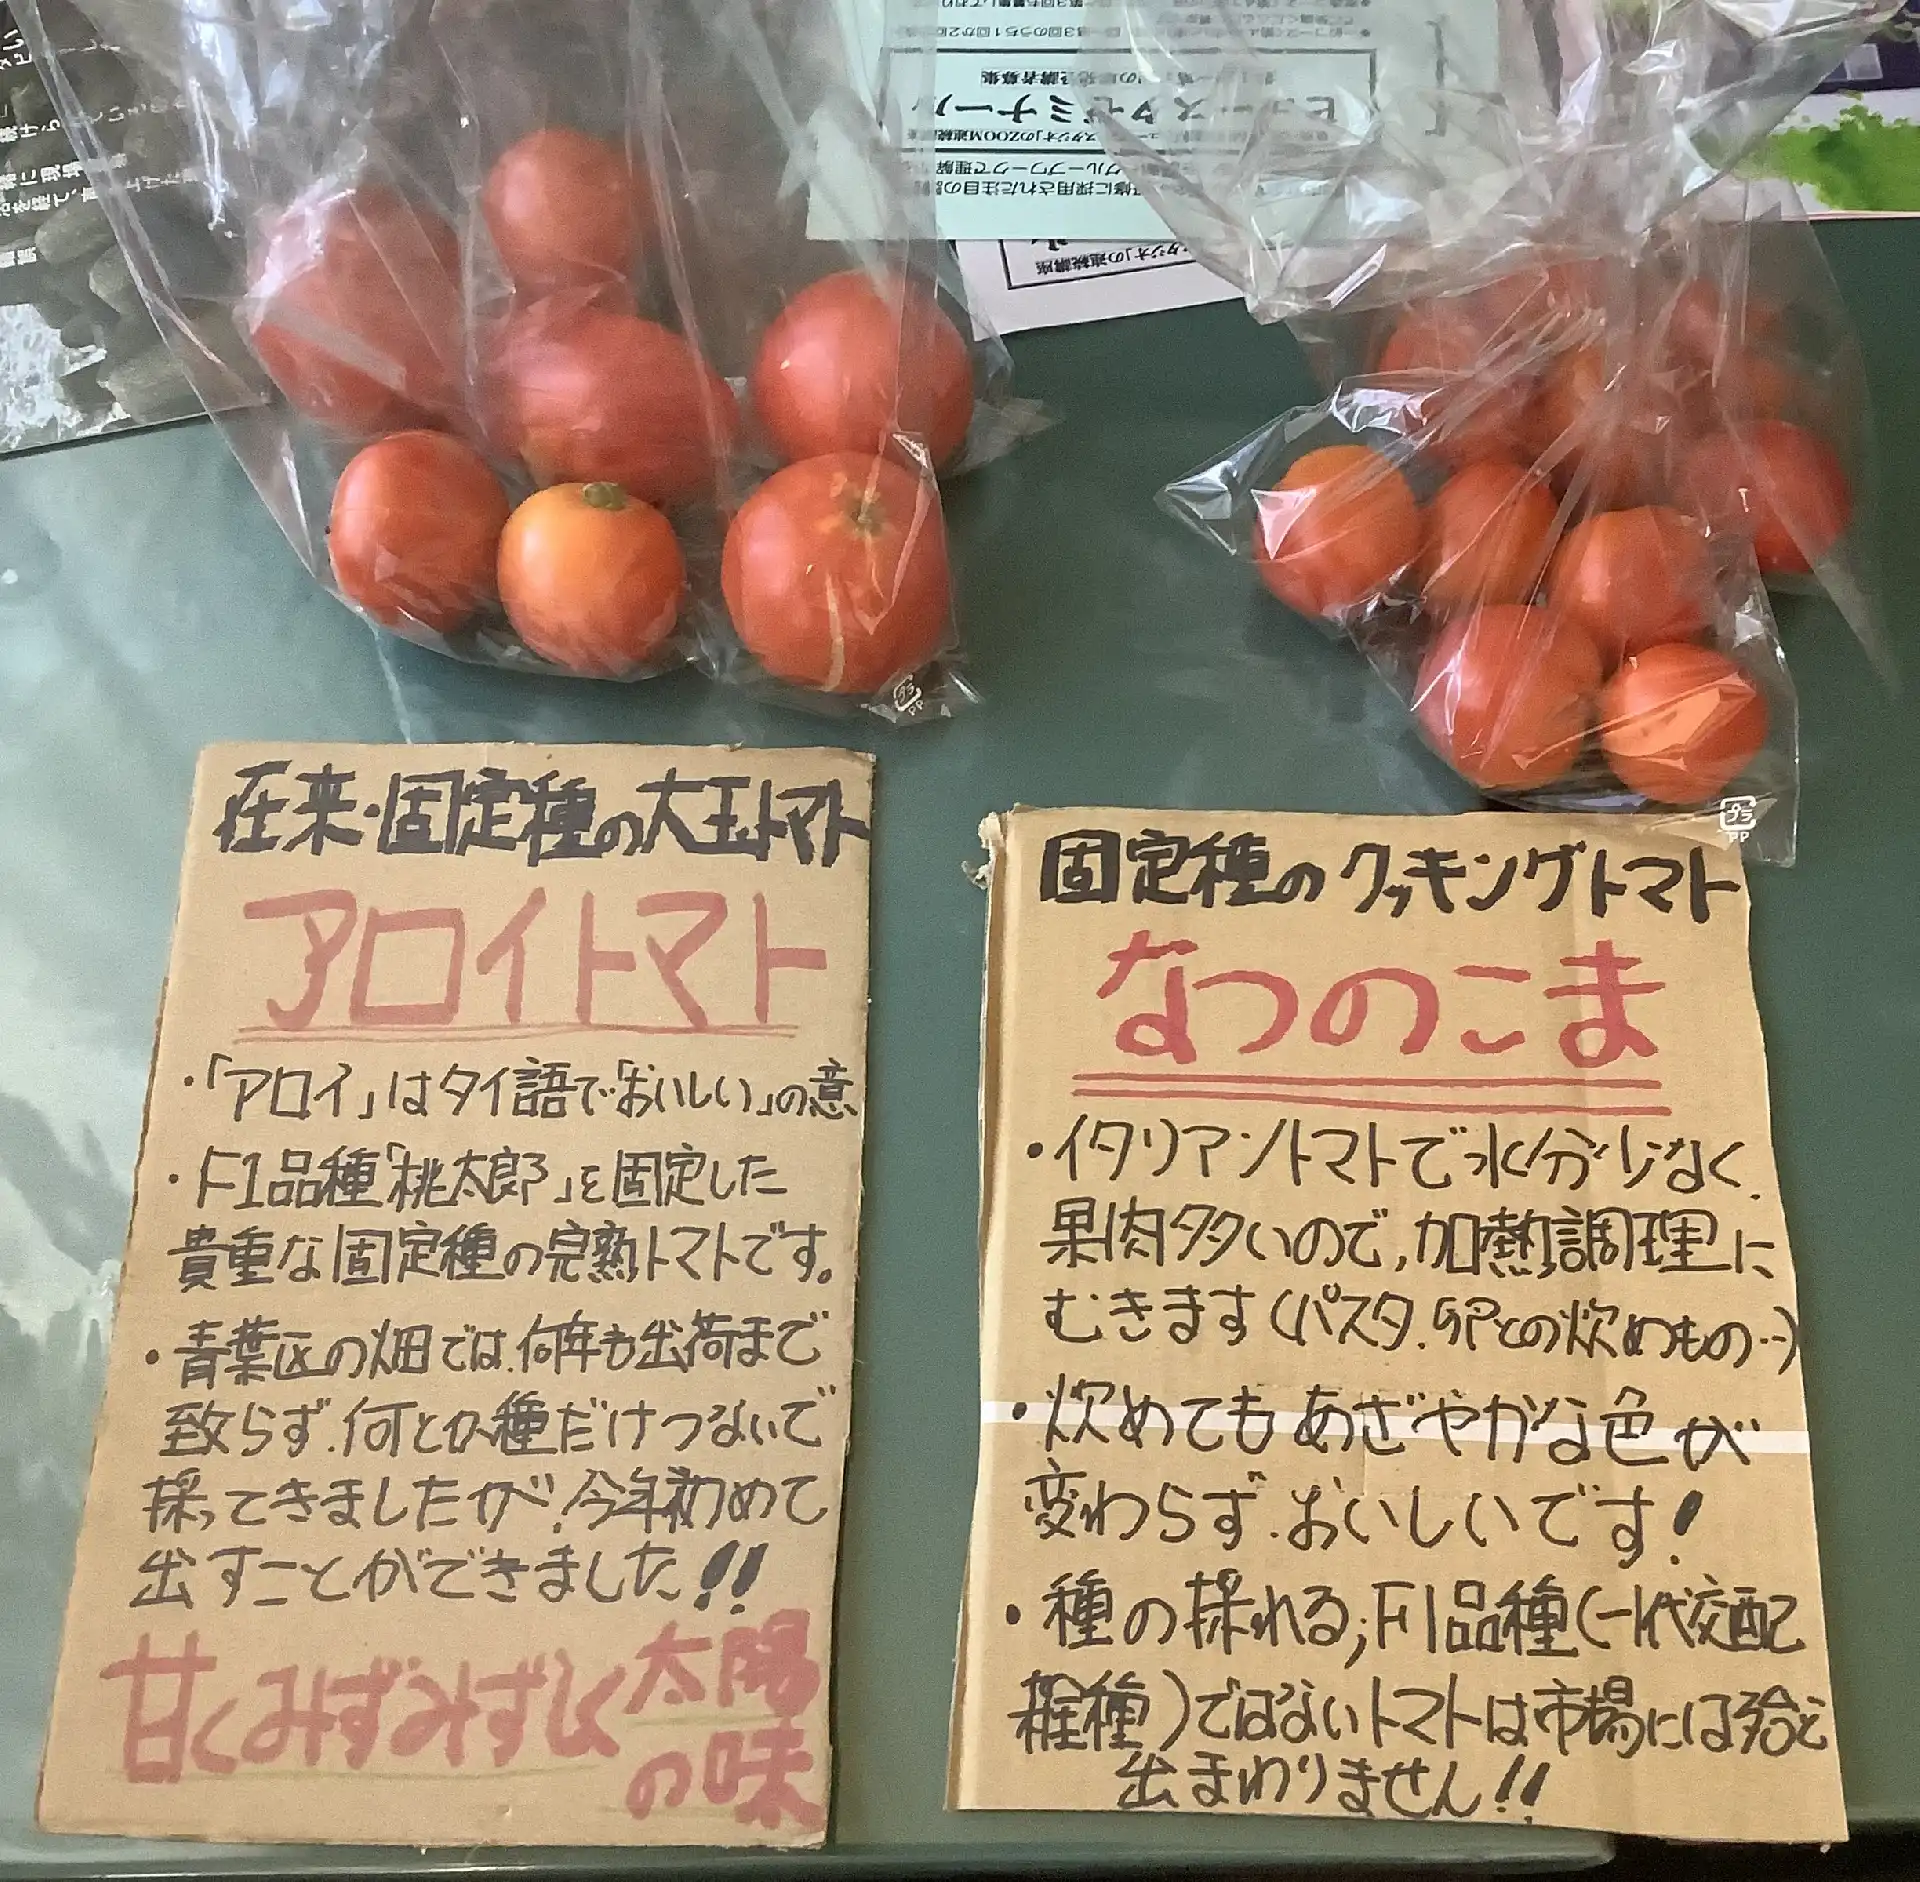 ビュー・スタゼミナール
在来・固定種の大玉トマト
アロイトマト
・「アロイ」はタイ語で「おいしい」の意
・F1品種「桃太郎」を固定した
貴重な固定種の完熟トマトです。
・青葉区の畑では、何年も出荷まで
致らず、何とか種だけつないで
採ってきましたが、今年初めて
出すことができました!!
甘くみずみずしく太陽
の味
プラ
PP
固定種のクッキングトマト
なつのこま
・イタリアントマトで水分少なく、
果肉多いので、加熱調理に
むきます(パスタ、卵との炒めもの…)
・炒めてもあざやかな色が
変わらず、おいしいです!
・種の採れる;F1品種(一代交配
雑種)ではないトマトは市場には殆ど
出まわりません!!
プラ
PP